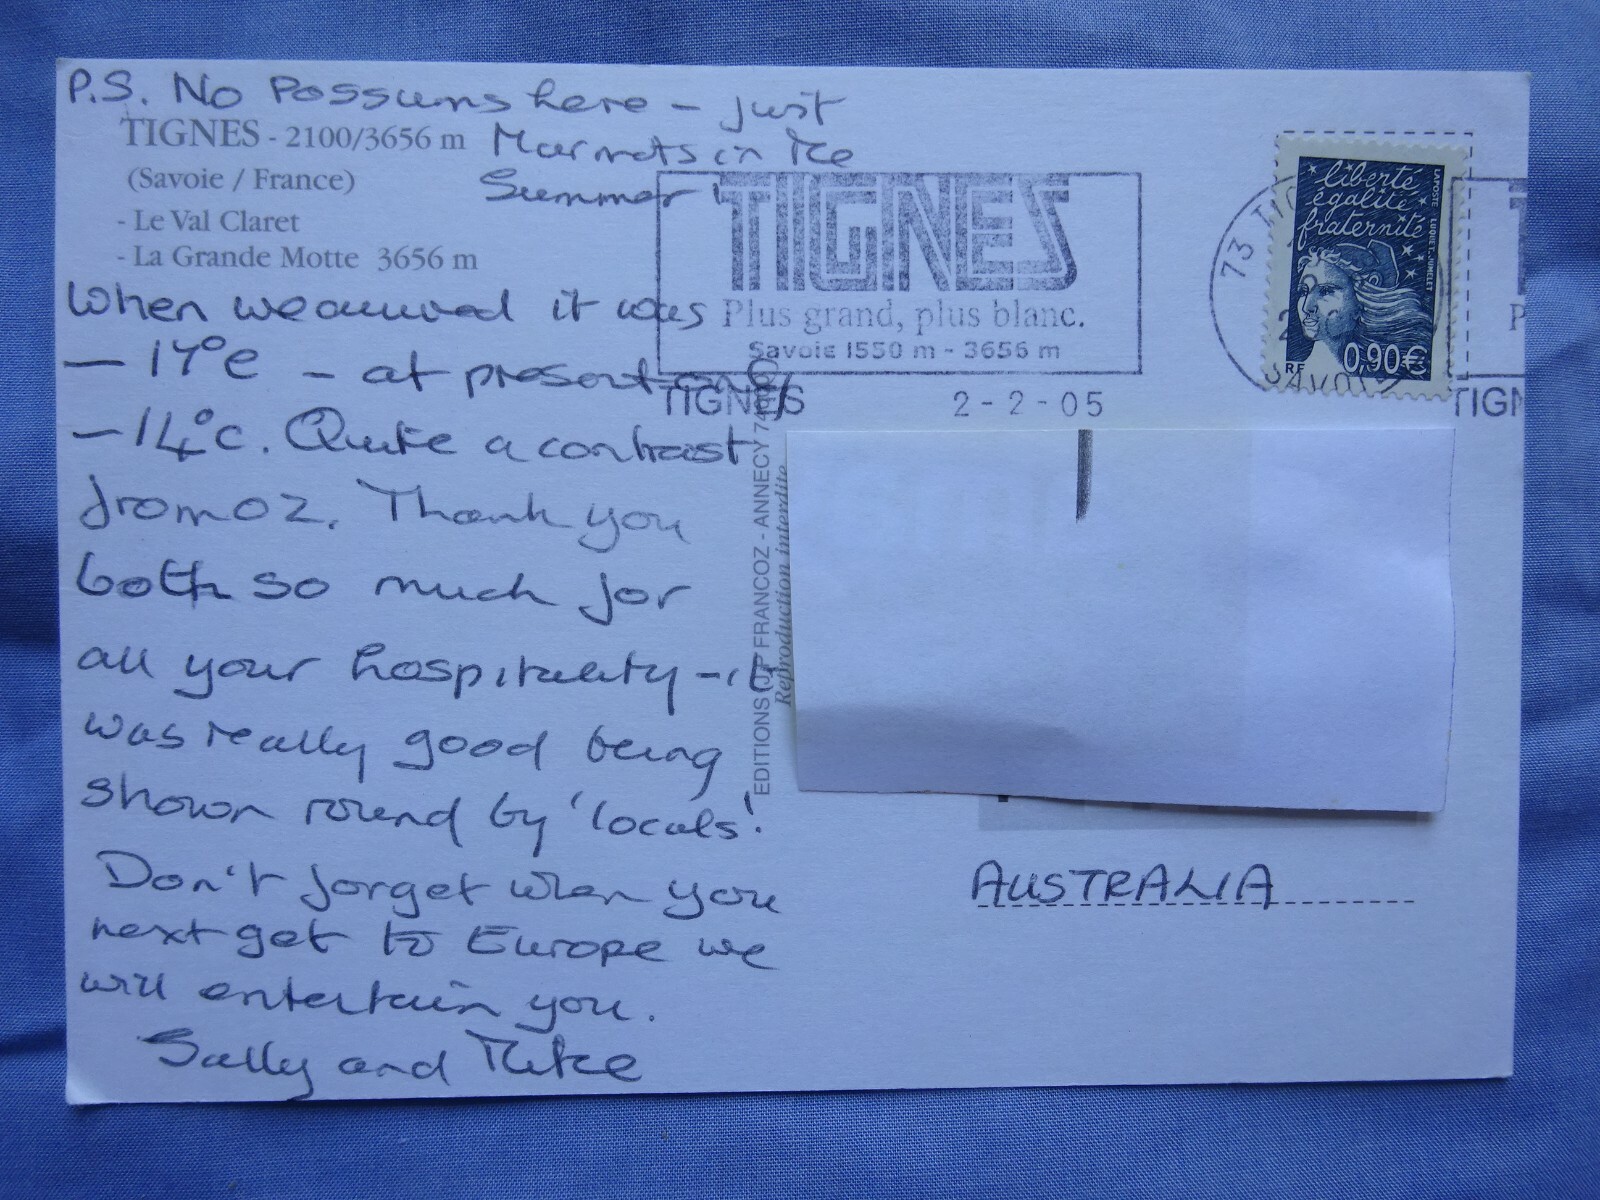 P.S. No Possums here - just
Marmots in the
Summer!
TIGNES - 2100/3656 m
(Savoie / France)
- Le Val Claret
- La Grande Motte 3656 m
When we arrived it was
- 17°c - at present only
- 14°c. Quite a contrast
from oz. Thank you
both so much for
all your hospitality - it
was really good being
shown round by 'locals'.
Don't forget when you
next get to Europe we
will entertain you.
Sally and Mike
TIGNES
Plus grand, plus blanc.
Savoie 1550 m - 3656 m
TIGNES 2-2-05
EDITIONS FRANCOZ - ANNECY
Reproduction interdite
73 TIG
2
SAVOIE
liberté
égalité
fraternité
LAPOSTE LUQUET-JUMELET
RF 0,90€
P
TIGN
AUSTRALIA